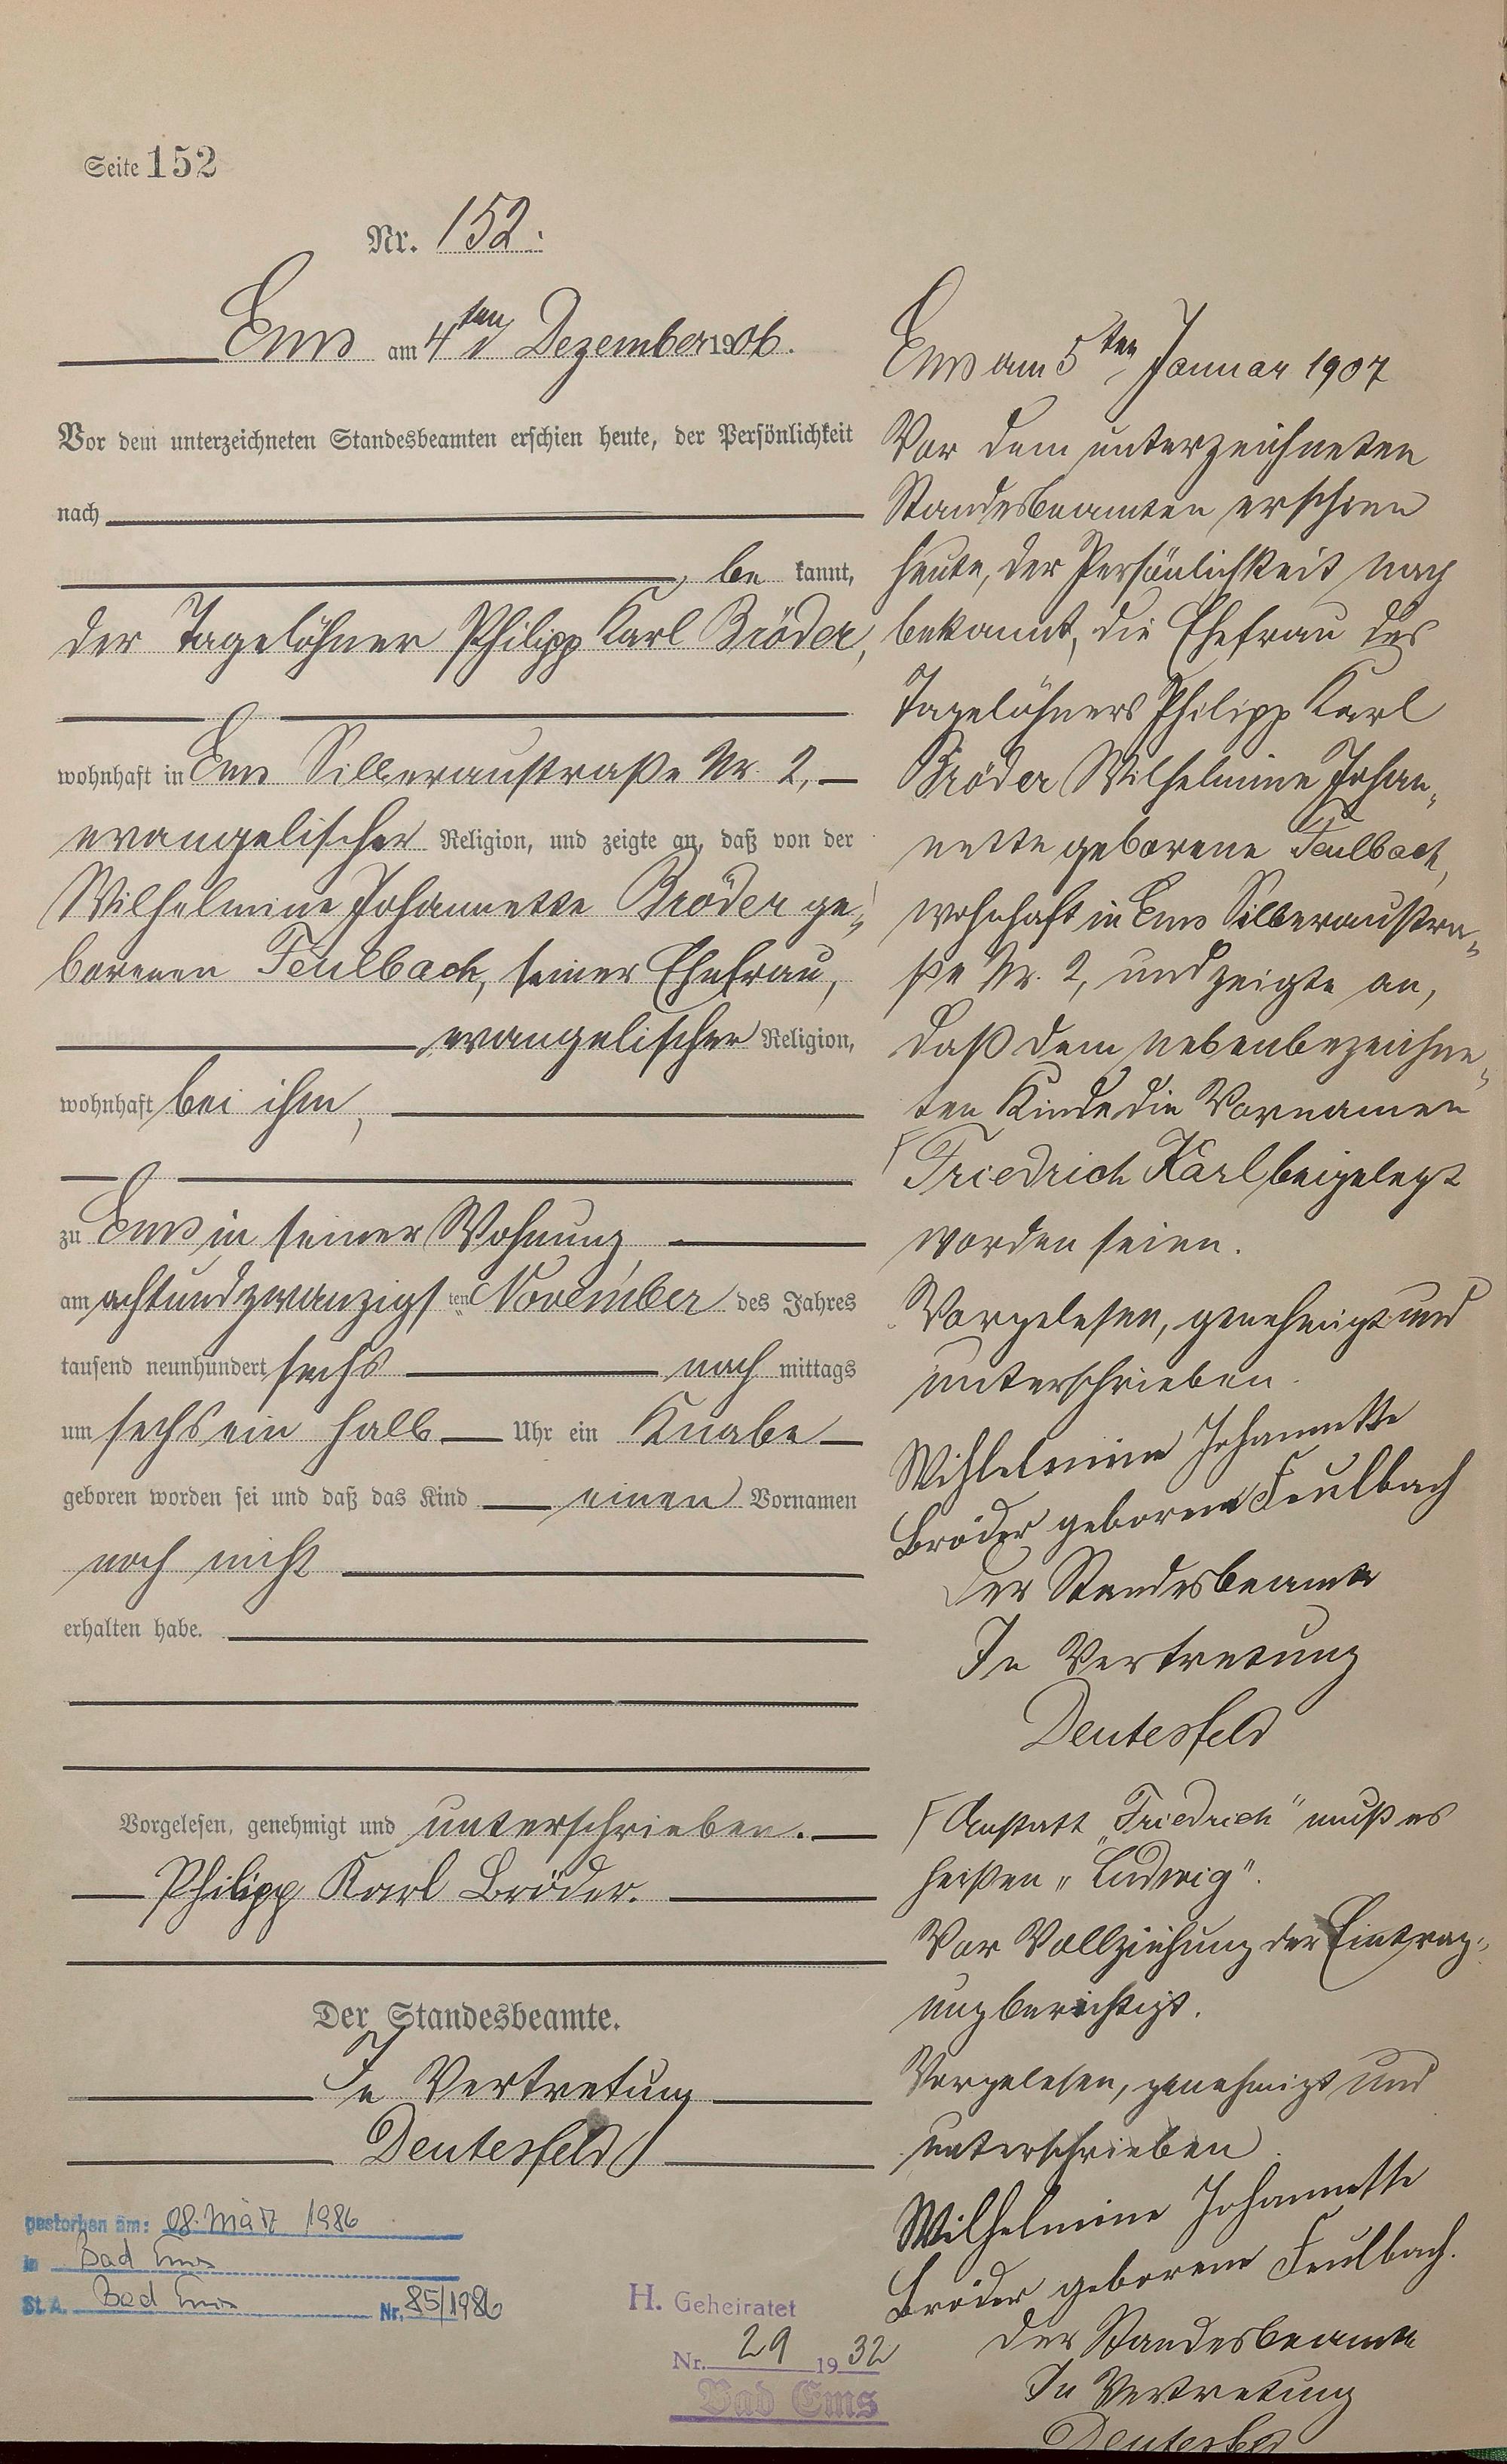 Seite 152
Nr. 152.
Ems am 4ten Dezember 1906.
Vor dem unterzeichneten Standesbeamten erschien heute, der Persönlichkeit
nach
, be kannt,
der Tagelöhner Philipp Karl Bröder,
wohnhaft in Ems Silberaustraße Nr. 2,
evangelischer Religion, und zeigte an, daß von der
Wilhelmine Johannette Bröder ge-
borenen Feulbach, seiner Ehefrau,
evangelischer Religion,
wohnhaft bei ihm,
zu Ems in seiner Wohnung
am achtundzwanzigsten November des Jahres
tausend neunhundert sechs nach mittags
um sechs ein halb Uhr ein Knabe
geboren worden sei und daß das Kind einen Vornamen
noch nicht
erhalten habe.
Vorgelesen, genehmigt und unterschrieben.
Philipp Karl Bröder.
Der Standesbeamte.
In Vertretung
Deutesfeld
gestorben am: 08. März 1986
in Bad Ems
St. A. Bad Ems Nr. 85/1986
H. Geheiratet
Nr. 29 1932
Bad Ems
Ems am 5ten Januar 1907
Vor dem unterzeichneten
Standesbeamten erschien
heute, der Persönlichkeit nach
bekannt, die Ehefrau des
Tagelöhners Philipp Karl
Bröder Wilhelmine Johan-
nette geborene Feulbach,
wohnhaft in Ems Silberaustra-
ße Nr. 2, und zeigte an,
daß dem nebenbezeichne-
ten Kinde die Vornamen
Friedrich Karl beigelegt
worden seien.
Vorgelesen, genehmigt und
unterschrieben.
Wihlelmine Johannette
Bröder geborene Feulbach
Der Standesbeamte
In Vertretung
Deutesfeld
Anstatt "Friedrich" muß es
heißen "Ludwig".
Vor Vollziehung der Eintrag-
ung berichtigt.
Vorgelesen, genehmigt und
unterschrieben.
Wilhelmine Johannette
Bröder geborene Feulbach.
Der Standesbeamte
In Vertretung
Deutesfeld